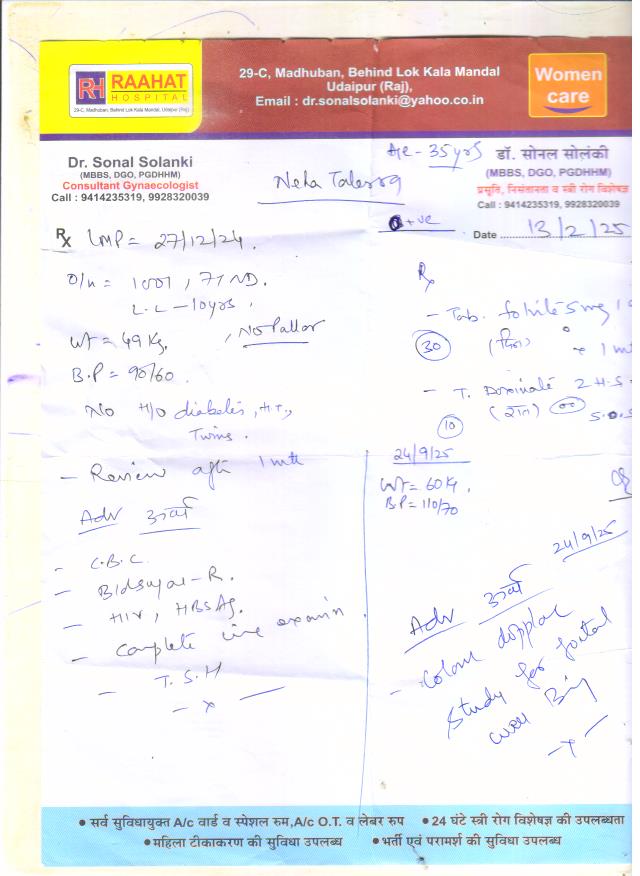 RH RAAHAT
HOSPITAL
29-C, Madhuban, Behind Lok Kala Mandal, Udaipur (Raj)
29-C, Madhuban, Behind Lok Kala Mandal
Udaipur (Raj),
Email : dr.sonalsolanki@yahoo.co.in
Women
care
Dr. Sonal Solanki
(MBBS, DGO, PGDHHM)
Consultant Gynaecologist
Call : 9414235319, 9928320039
Age - 35yrs
Neha
+ve
डॉ. सोनल सोलंकी
(MBBS, DGO, PGDHHM)
प्रसूति, निसंतानता व स्त्री रोग विशेषज्ञ
Call : 9414235319, 9928320039
Date 13/2/25
Rx LMP = 27/12/24.
L.L - 10yrs,
wt = 49 Kg, , No Pallor
B.P = 90/60
No H/o diabetes, HT,
Twins.
- Review aft 1 mth
Adv
- C.B.C.
- Bldsugar - R.
- HIV, HBSAg.
- Complete urine examin.
- T.S.H
- x -
Rx
- Tab. folvite 5mg
30 x 1 mt
- T. 2 H.S.
(रात) S.O.S
10
24/9/25
wt = 60 Kg.
B.P = 110/70
24/9/25
Adv
- Colour dopplar
study for foetal
well
- x -
• सर्व सुविधायुक्त A/c वार्ड व स्पेशल रुम,A/c O.T. व लेबर रुप • 24 घंटे स्त्री रोग विशेषज्ञ की उपलब्धता
• महिला टीकाकरण की सुविधा उपलब्ध • भर्ती एवं परामर्श की सुविधा उपलब्ध